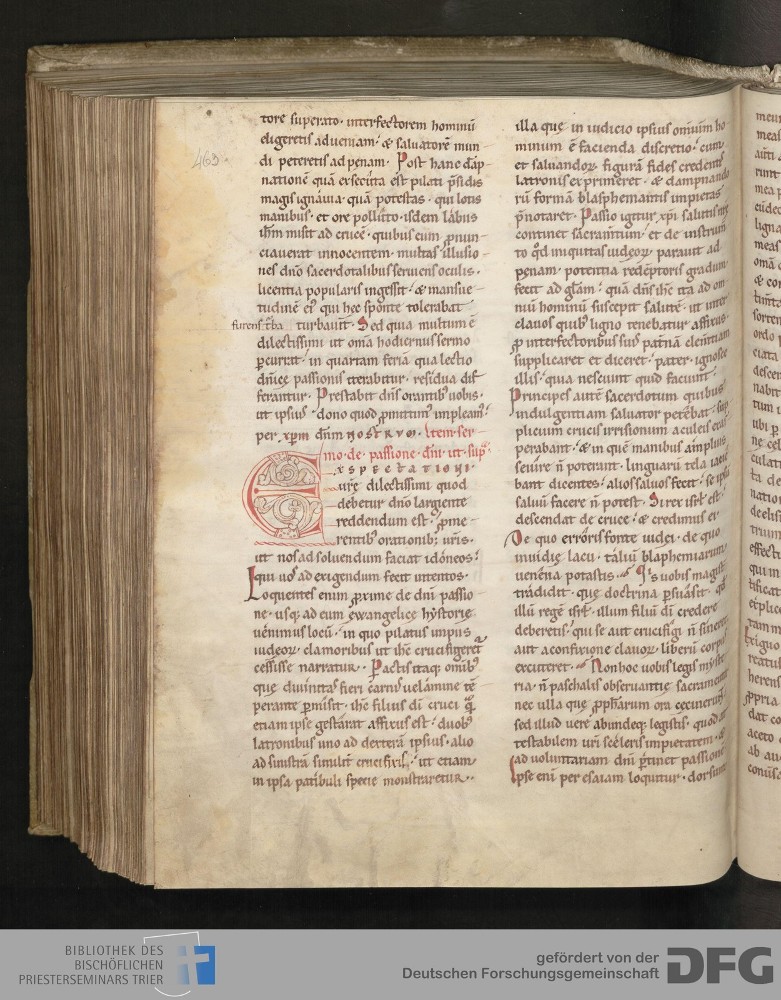 463
tore superato · interfectorem hominū
eligeretis adueniam · & saluatorē mun
di peteretis ad penam · Post hanc dāp
nationē quā exsecuta est pilati p̄sidis
magis ignauia · quā potestas · qui lotis
manibus · et ore polluto · isdem labiis
ihm̄ misit ad crucē · quibus eum pronun
ciauerat innocentem · multas illusio
nes dn̄o sacerdotalibus seruiens oculis ·
licentia popularis ingessit · & mansue
tudinē ei᷒ qui hec sponte tolerabat
furens t̄ba turbauit · Sed quia multum ē
dilectissimi ut omīa hodiernus sermo
ꝑcurrat · in quartam feriā qua lectio
dn̄icę passionis iterabitur · residua dif
ferantur · Prestabit dn̄s orantib᷒ uobis ·
ut ipsius · dono quod ꝓmittim᷒ impleam᷒
per xp̄m dn̄m nostrum · Item ser
mo · de · passione · dn̄i · ut · sup̄
EXSPECTATIONI
urę dilectissimi quod
debetur dn̄o largiente
reddendum est · ꝓme
rentib᷒ orationib; uris ·
ut nos ad soluendum faciat idoneos ·
qui uos ad exigendum fecit intentos ·
Loquentes enim ꝓxime de dn̄i passio
ne · usq; ad eum ęwangelicę hystorię
uenimus locū · in quo pilatus impiis
iudeoꝝ clamoribus ut ihc crucifigeret᷑
cessisse narratur · Pactis itaq; omib᷒
que diuinitas fieri carnis uelamine tē
perante ꝑmisit · ihc filius dī cruci quā
etiam ipse gestarat affixus est · duob᷒
latronibus uno ad dexterā ipsius · alio
ad sinistrā similit̄ crucifixis · ut etiam
in ipsa patibuli specie monstraretur ·
illa quę in iudicio ipsius omnium ho
minum ē facienda discretio · cum
et saluandoꝝ figurā fides credentis
latronis exprimeret · & dampnando
rū formā blasphemantis impietas
p̄notaret · Passio igitur xp̄i salutis nrę
continet sacram̄tum · et de instrum̄
to qd̄ iniquitas iudęoꝝ parauit ad
pęnam · potentia redēptoris gradum
fecit ad glam̄ · quā dn̄s ihc ita ad om
niū hominū suscepit salutē · ut inter
clauos quib᷒ ligno tenebatur affixus
ꝓ interfectoribus suis pat̄nā clem̄tiam
supplicaret et diceret · pater · ignosce
illis · quia nesciunt quid faciunt ·
Principes autē sacerdotum quibus
indulgentiam saluator petebat · sup
plicium crucis irrisionum aculeis exas
perabant · & in quē manibus amplius
seuire n̄ poterant · linguarū tela iacie
bant dicentes · alios saluos fecit · se ip̄m
saluū facere n̄ potest · Si rex isrl̄ est ·
descendat de cruce · & credimus ei
De quo erroris fonte iudei · de quo
inuidię lacu · taliū blaphemiarum
uenena potastis · Quis uobis magist̄
tradidit · quę doctrina ꝑsuasit · qd̄
illū regē isrl̄ · illum filiū dī credere
deberetis · qui se aut crucifigi n̄ sineret
aut a confixione clauoꝝ liberū corpus
excuteret · Non hoc uobis legis myste
ria · n̄ paschalis obseruantię sacramenta
nec ulla que ꝓph̄arum ora cecinerunt
sed illud uere abundeq; legistis · quod de
testabilem uri sceleris impietatem · &
ad uoluntariam dn̄i ꝑtinet passionē
Ipse eni per esaiam loquitur · dorsum
BIBLIOTHEK DES
BISCHÖFLICHEN
PRIESTERSEMINARS TRIER
gefördert von der
Deutschen Forschungsgemeinschaft
DFG